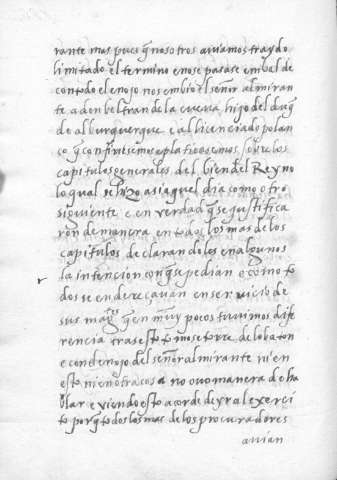 rante mas puco q̃ nosotros aviamos traydo
limitado el termino e no se pasase en balde
con todo el enojo nos enbio el señor almiran
te a don beltran de la cueva hijo del duq̃
de alburquerque e al licenciado polan
co q̃ confiriesemos e platicasemos sobre los
capitulos generales del bien del Reyno
lo qual se hizo asi aquel dia como otro
siguiente e en verdad q̃ se justifica
ron de manera en todos los mas de los
capitulos declarandoles en algunos
la intencion con q̃ se pedian o como to
dos se enderecavan en servicio de
sus mag.des q̃ en muy pocos tuvimos dife
rencia tras esto tomose torre de lobaton
e con el enojo del señor almirante ni en
esto ni en otra cosa no ovo manera de ha
blar e viendo esto acorde de yr al exerci
to porq̃ todos los mas de los procuradores
avian